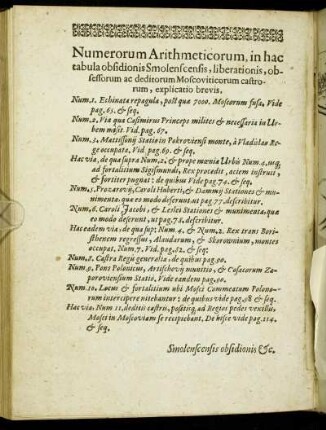 Numerorum Arithmeticorum, in hac
tabula obsidionis Smolenscensis, liberationis, ob-
sessorum ac deditorum Moscoviticorum castro-
rum, explicatio brevis.
Num. 1. Echinata repagula, post quæ 7000. Moscorum fusa, Vide
pag. 65. & seq.
Num. 2. Via qua Casimirus Princeps milites & necessaria in Ur-
bem misit. Vid. pag. 67.
Num. 3. Mattissonij Statio in Pokroviensi monte, à Vladislao
Rege occupata, Vid. pag. 69. & seq.
Hac via, de qua supra Num. 2. & prope mœnia Urbis Num. 4. usq;
ad fortalitium Sigismundi, Rex procedit, aciem instruit,
& fortiter pugnat: de quibus Vide pag. 74. & seq.
Num. 5. Prozarovij, Caroli Huberti, & Dammij Stationes & mu-
nimenta. quæ eo modo deserunt, ut pag. 77. describitur.
Num. 6. Caroli Jacobi, & Leslei Stationes & munimenta, quæ
eo modo deserunt, ut pag. 78. describitur.
Hac eadem via, de qua sup: Num. 4. & Num. 2. Rex trans Bori-
sthenem regressus, Alaudarum, & Skovronium, montes
occupat, Num. 7. Vid. pag. 82. & seq.
Num. 8. Castra Regis generalia, de quibus pag. 90.
Num. 9. Pons Polonicus, Artischevij munitio, & Cosacorum Za-
poroviensium Statio, Vide eandem pag. 90.
Num. 10. Locus & fortalitium ubi Mosci Commeatum Polono-
rum intercipere nitebantur: de quibus vide pag. 98 & seq.
Hac via Num. 11. deditis castris, positisq; ad Regios pedes vexillis,
Mosci in Moscoviam se recipiebant. De hisce vide pag. 114.
& seq.
Smolenscensis obsidionis &c.